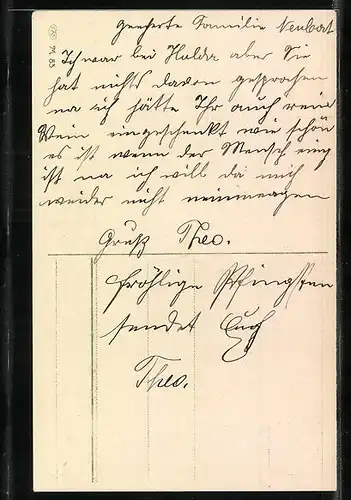 Geeherte Familie Neubert
Ich war bei Hulda aber Sie
hat nichts davon gesprochen
na ich hätte Ihr auch rein
Wein eingeschenkt wie schön
es ist wenn der Mensch einig
ist na ich will da mich
weider nicht neinmengen
Gruß Theo.
fröhlige Pfingsten
sendet Euch
Theo.